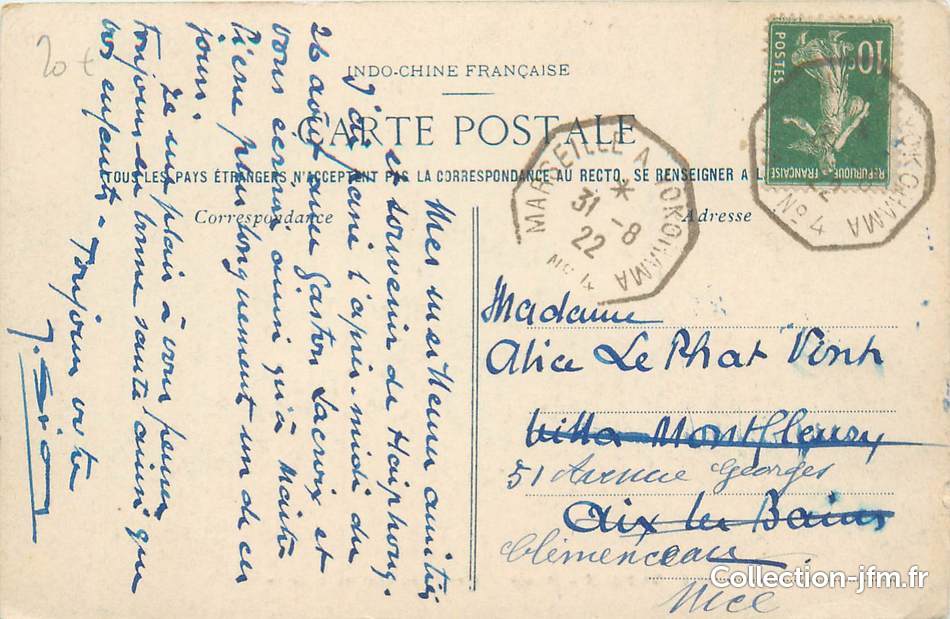 20 €
INDO-CHINE FRANÇAISE
CARTE POSTALE
TOUS LES PAYS ÉTRANGERS N'ACCEPTENT PAS LA CORRESPONDANCE AU RECTO, SE RENSEIGNER A L
Correspondance
Adresse
10c
POSTES
REPUBLIQUE FRANÇAISE
MARSEILLE A YOKOHAMA
*
31 -8
22
No 4
YOKOHAMA
No 4
Mes meilleures amitiés
et souvenir de Haiphong.
J'ai passé l'après-midi du
26 août avec Gaston Lacroix et
vous écrirai ainsi qu'à Maître
Pierre plus longuement un de ces
jours.
Je me plais à vous penser
toujours en bonne santé ainsi que
vos enfants - Toujours vôtre
Madame
Alice Le Phat Vinh
Villa Montfleury
51 Avenue Georges
Aix les Bains
Clémenceau
Nice
Collection-jfm.fr